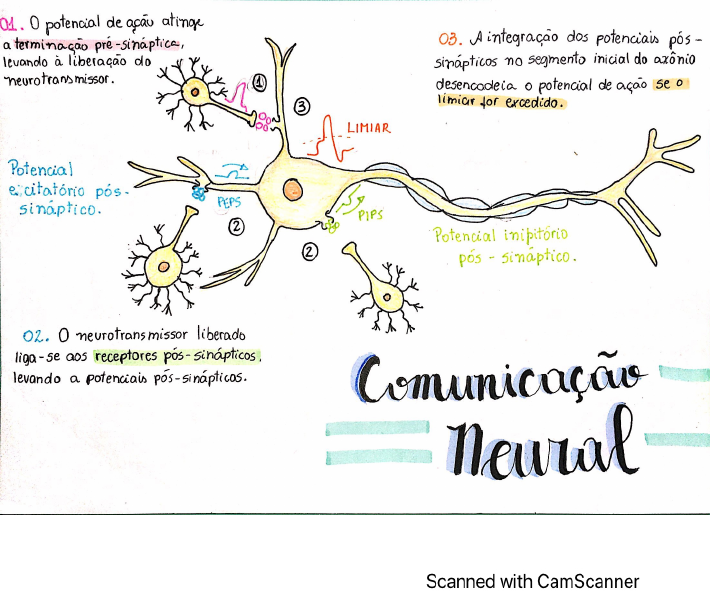 01. O potencial de ação atinge
a terminação pré-sináptica,
levando à liberação do
neurotransmissor.
03. A integração dos potenciais pós-
sinápticos no segmento inicial do axônio
desencadeia o potencial de ação se o
limiar for excedido.
1
3
LIMIAR
Potencial
excitatório pós-
sináptico.
PEPS
PIPS
2
2
Potencial inibitório
pós - sináptico.
02. O neurotransmissor liberado
liga-se aos receptores pós-sinápticos,
levando a potenciais pós-sinápticos.
Comunicação
Neural
Scanned with CamScanner